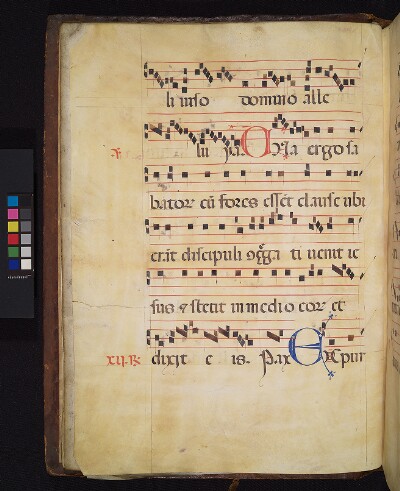 li miso domino alle
lu ya. Una ergo sa
bator cū fores essēt clause ubi
erāt discipuli ꝯg̃ga ti uenit ie
sus ⁊ stetit in medi o eor et
xij. R dixit e is. Pax Expur